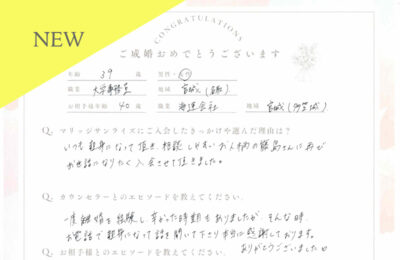 NEW
CONGRATULATIONS
ご成婚おめでとうございます
年齢 39 歳 男性・女性
職業 大学事務員 地域 宮城
お相手様年齢 40 歳 職業 運送会社 地域 宮城
Q. マリッジサンライズにご入会したきっかけや選んだ理由は？
いつも親身になって頂き、相談しやすいお人柄の飯島さんに再び
お世話になりたく入会させて頂きました。
Q. カウンセラーとのエピソードを教えてください。
一度離婚を経験し辛かった時期もありましたが、そんな時
お電話で親身になって話を聞いて下さり本当に感謝しております。
ありがとうございました
Q. お相手様とのエピソードを教えてください。